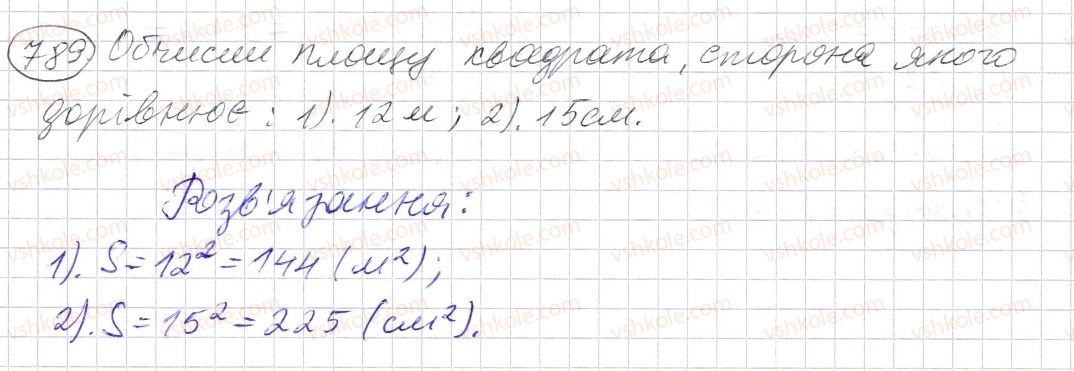 789. Обчисли площу квадрата, сторона якого
дорівнює: 1). 12 м; 2). 15 см.
Розв'язання:
1). S = 12² = 144 (м²);
2). S = 15² = 225 (см²).